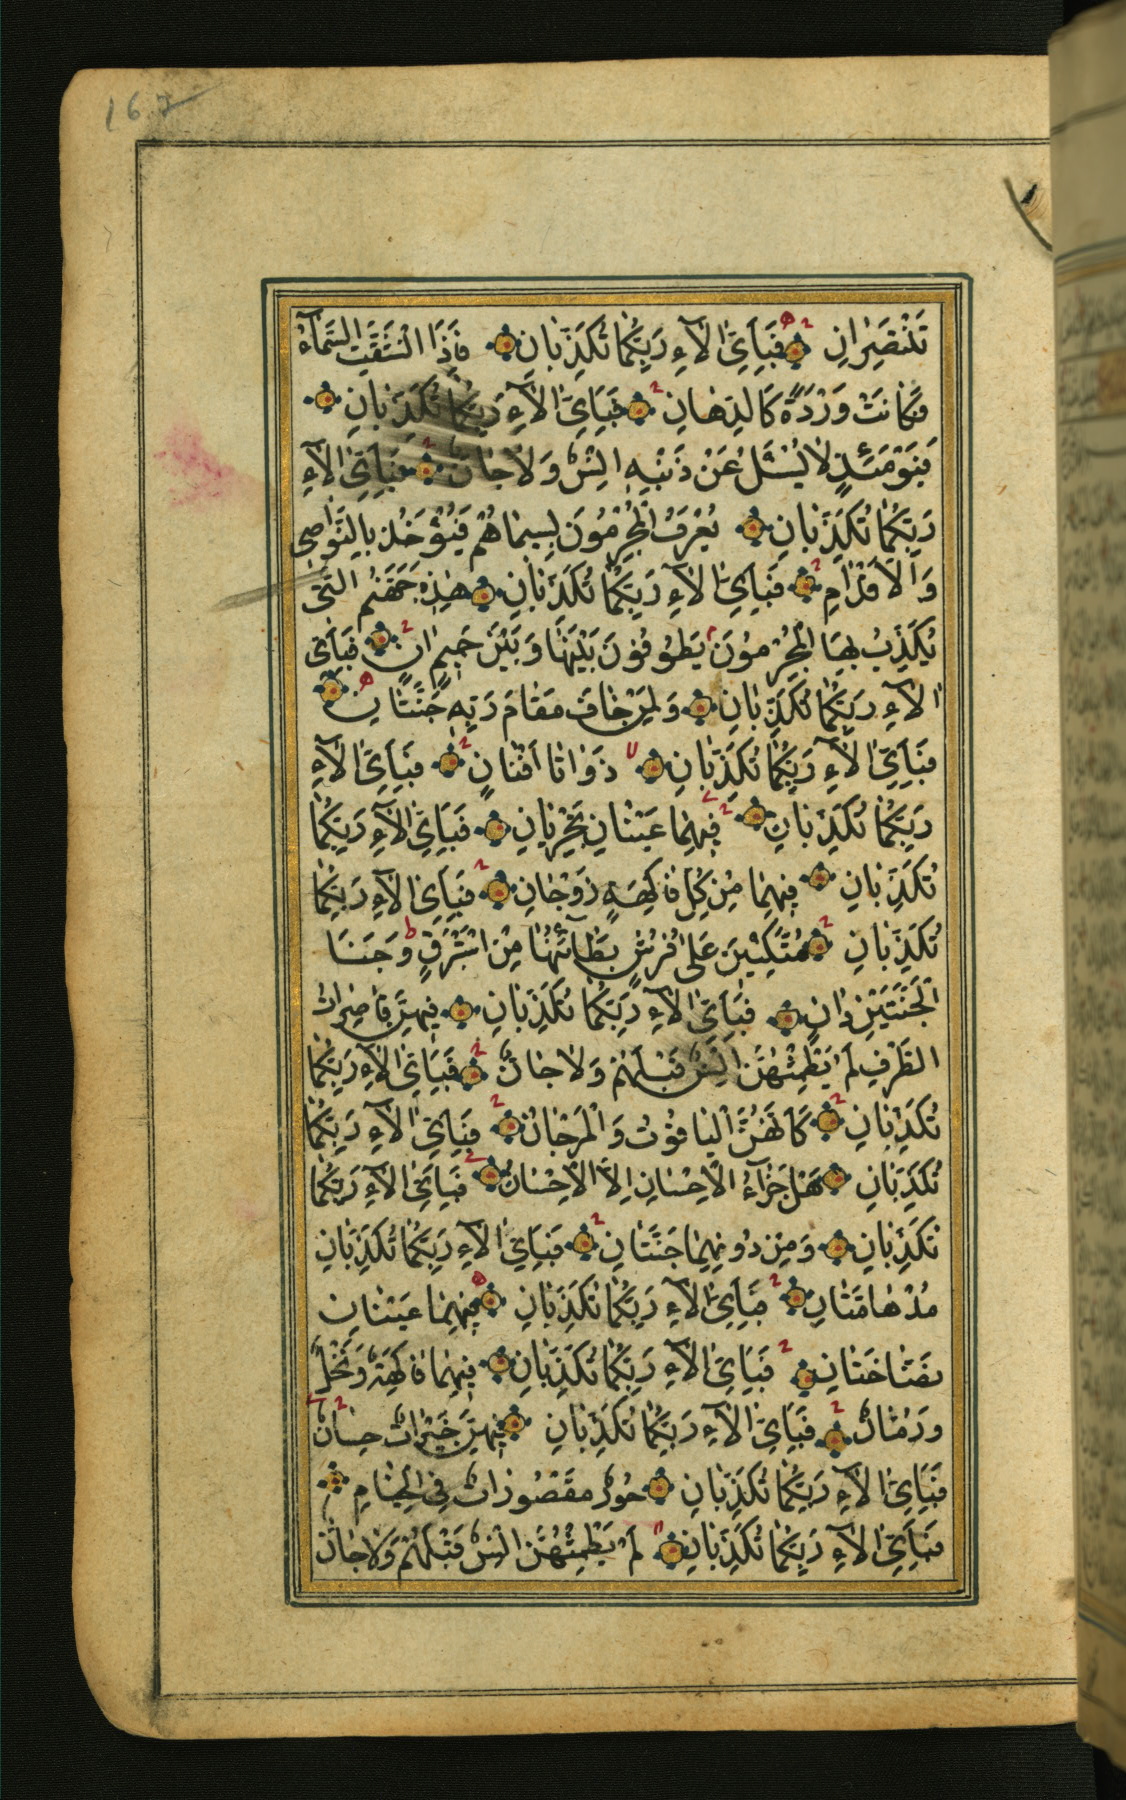 167
تَنْتَصِرَانِ فَبِأَيِّ اٰلَآءِ رَبِّكُمَا تُكَذِّبَانِ فَاِذَا انْشَقَّتِ السَّمَآءُ
فَكَانَتْ وَرْدَةً كَالدِّهَانِ فَبِأَيِّ اٰلَآءِ رَبِّكُمَا تُكَذِّبَانِ
فَيَوْمَئِذٍ لَا يُسْئَلُ عَنْ ذَنْبِهٖ اِنْسٌ وَلَا جَانٌّ فَبِأَيِّ اٰلَآءِ
رَبِّكُمَا تُكَذِّبَانِ يُعْرَفُ الْمُجْرِمُونَ بِسِيمَاهُمْ فَيُؤْخَذُ بِالنَّوَاصِي
وَالْاَقْدَامِ فَبِأَيِّ اٰلَآءِ رَبِّكُمَا تُكَذِّبَانِ هٰذِهٖ جَهَنَّمُ الَّتِي
يُكَذِّبُ بِهَا الْمُجْرِمُونَ يَطُوفُونَ بَيْنَهَا وَبَيْنَ حَمِيمٍ اٰنٍ فَبِأَيِّ
اٰلَآءِ رَبِّكُمَا تُكَذِّبَانِ وَلِمَنْ خَافَ مَقَامَ رَبِّهٖ جَنَّتَانِ
فَبِأَيِّ اٰلَآءِ رَبِّكُمَا تُكَذِّبَانِ ذَوَاتَا اَفْنَانٍ فَبِأَيِّ اٰلَآءِ
رَبِّكُمَا تُكَذِّبَانِ فِيهِمَا عَيْنَانِ تَجْرِيَانِ فَبِأَيِّ اٰلَآءِ رَبِّكُمَا
تُكَذِّبَانِ فِيهِمَا مِنْ كُلِّ فَاكِهَةٍ زَوْجَانِ فَبِأَيِّ اٰلَآءِ رَبِّكُمَا
تُكَذِّبَانِ مُتَّكِئِينَ عَلٰى فُرُشٍ بَطَآئِنُهَا مِنْ اِسْتَبْرَقٍ وَجَنَا
الْجَنَّتَيْنِ دَانٍ فَبِأَيِّ اٰلَآءِ رَبِّكُمَا تُكَذِّبَانِ فِيهِنَّ قَاصِرَاتُ
الطَّرْفِ لَمْ يَطْمِثْهُنَّ اِنْسٌ قَبْلَهُمْ وَلَا جَانٌّ فَبِأَيِّ اٰلَآءِ رَبِّكُمَا
تُكَذِّبَانِ كَاَنَّهُنَّ الْيَاقُوتُ وَالْمَرْجَانُ فَبِأَيِّ اٰلَآءِ رَبِّكُمَا
تُكَذِّبَانِ هَلْ جَزَآءُ الْاِحْسَانِ اِلَّا الْاِحْسَانُ فَبِأَيِّ اٰلَآءِ رَبِّكُمَا
تُكَذِّبَانِ وَمِنْ دُونِهِمَا جَنَّتَانِ فَبِأَيِّ اٰلَآءِ رَبِّكُمَا تُكَذِّبَانِ
مُدْهَامَّتَانِ فَبِأَيِّ اٰلَآءِ رَبِّكُمَا تُكَذِّبَانِ فِيهِمَا عَيْنَانِ
نَضَّاخَتَانِ فَبِأَيِّ اٰلَآءِ رَبِّكُمَا تُكَذِّبَانِ فِيهِمَا فَاكِهَةٌ وَنَخْلٌ
وَرُمَّانٌ فَبِأَيِّ اٰلَآءِ رَبِّكُمَا تُكَذِّبَانِ فِيهِنَّ خَيْرَاتٌ حِسَانٌ
فَبِأَيِّ اٰلَآءِ رَبِّكُمَا تُكَذِّبَانِ حُورٌ مَقْصُورَاتٌ فِي الْخِيَامِ
فَبِأَيِّ اٰلَآءِ رَبِّكُمَا تُكَذِّبَانِ لَمْ يَطْمِثْهُنَّ اِنْسٌ قَبْلَهُمْ وَلَا جَانٌّ